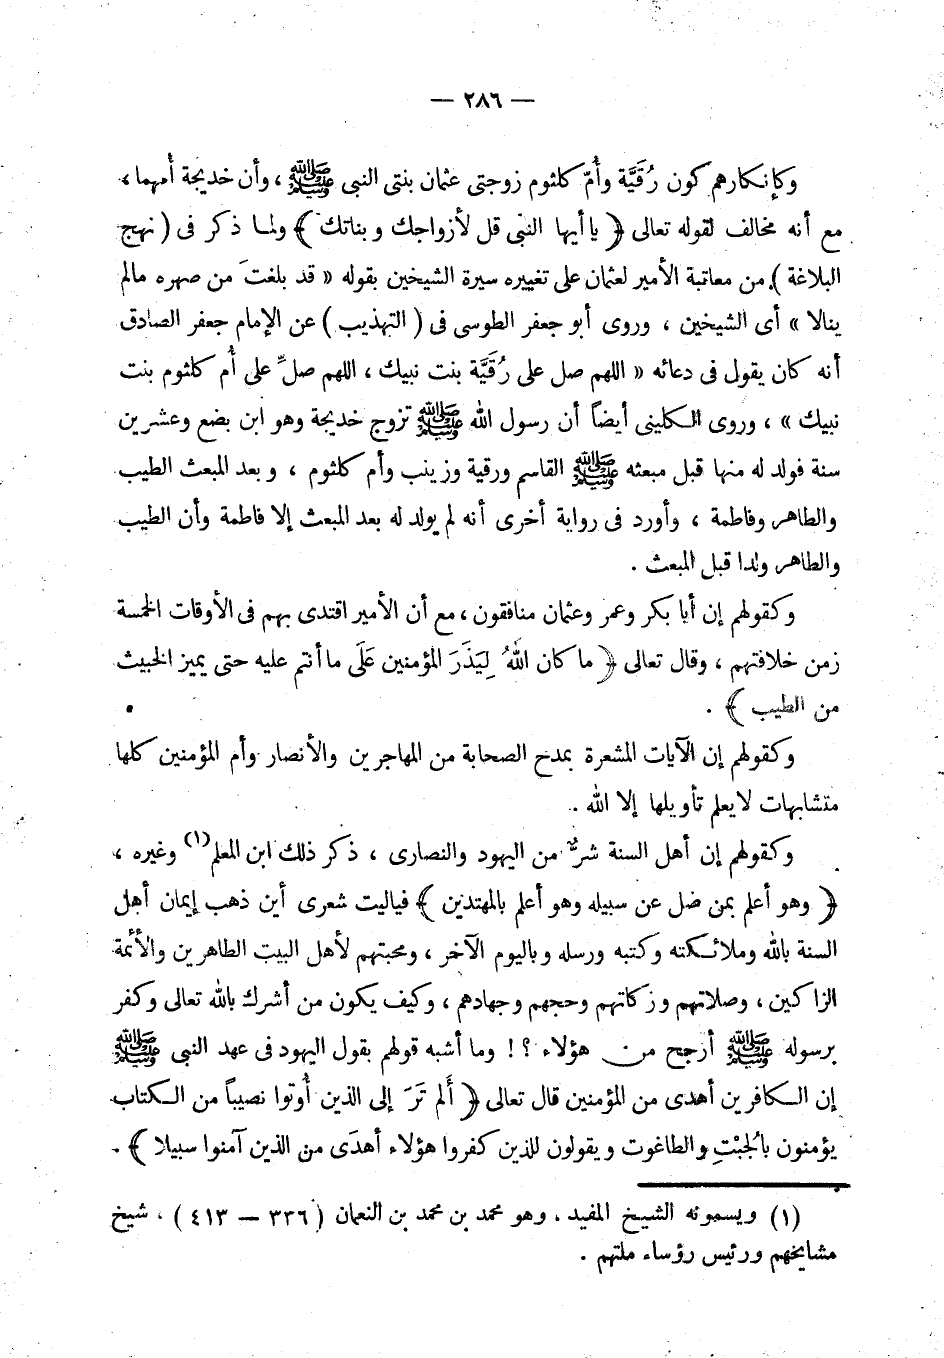 — ٢٨٦ —
وكإنكارهم كون رُقَيَّة وأُمّ كلثوم زوجتى عثمان بنتى النبى ﷺ ، وأن خديجة أمهما ،
مع أنه مخالف لقوله تعالى ﴿ يا أيها النبى قل لأزواجك وبناتك ﴾ ولما ذكر فى ( نهج
البلاغة ) من معاتبة الأمير لعثمان على تغييره سيرة الشيخين بقوله « قد بلغتَ من صهره مالم
ينالا » أى الشيخين ، وروى أبو جعفر الطوسى فى ( التهذيب ) عن الإمام جعفر الصادق
أنه كان يقول فى دعائه « اللهم صل على رُقَيَّة بنت نبيك ، اللهم صلِّ على أُم كلثوم بنت
نبيك » ، وروى الكلينى أيضاً أن رسول الله ﷺ تزوج خديجة وهو ابن بضع وعشرين
سنة فولد له منها قبل مبعثه ﷺ القاسم ورقية وزينب وأم كلثوم ، وبعد المبعث الطيب
والطاهر وفاطمة ، وأورد فى رواية أخرى أنه لم يولد له بعد المبعث إلا فاطمة وأن الطيب
والطاهر ولدا قبل المبعث .
وكقولهم إن أبا بكر وعمر وعثمان منافقون ، مع أن الأمير اقتدى بهم فى الأوقات الخمسة
زمن خلافتهم ، وقال تعالى ﴿ ما كان اللهُ لِيَذَرَ المؤمنين عَلَى ما أنتم عليه حتى يميز الخبيث
من الطيب ﴾ .
وكقولهم إن الآيات المشعرة بمدح الصحابة من المهاجرين والأنصار وأم المؤمنين كلها
متشابهات لا يعلم تأويلها إلا الله .
وكقولهم إن أهل السنة شرٌّ من اليهود والنصارى ، ذكر ذلك ابن المعلم(١) وغيره ،
﴿ وهو أعلم بمن ضل عن سبيله وهو أعلم بالمهتدين ﴾ فياليت شعرى أين ذهب إيمان أهل
السنة بالله وملائكته وكتبه ورسله وباليوم الآخر ، ومحبتهم لأهل البيت الطاهرين والأئمة
الزاكين ، وصلاتهم وزكاتهم وحجهم وجهادهم ، وكيف يكون من أشرك بالله تعالى وكفر
برسوله ﷺ أرجح من هؤلاء ؟! وما أشبه قولهم بقول اليهود فى عهد النبى ﷺ
إن الكافرين أهدى من المؤمنين قال تعالى ﴿ ألم تَرَ إلى الذين أُوتوا نصيباً من الكتاب
يؤمنون بالجبْتِ والطاغوت ويقولون للذين كفروا هؤلاء أهدَى من الذين آمنوا سبيلا ﴾ .
(١) ويسمونه الشيخ المفيد . وهو محمد بن محمد بن النعمان ( ٣٣٦ — ٤١٣ ) ، شيخ
مشايخهم ورئيس رؤساء ملتهم .